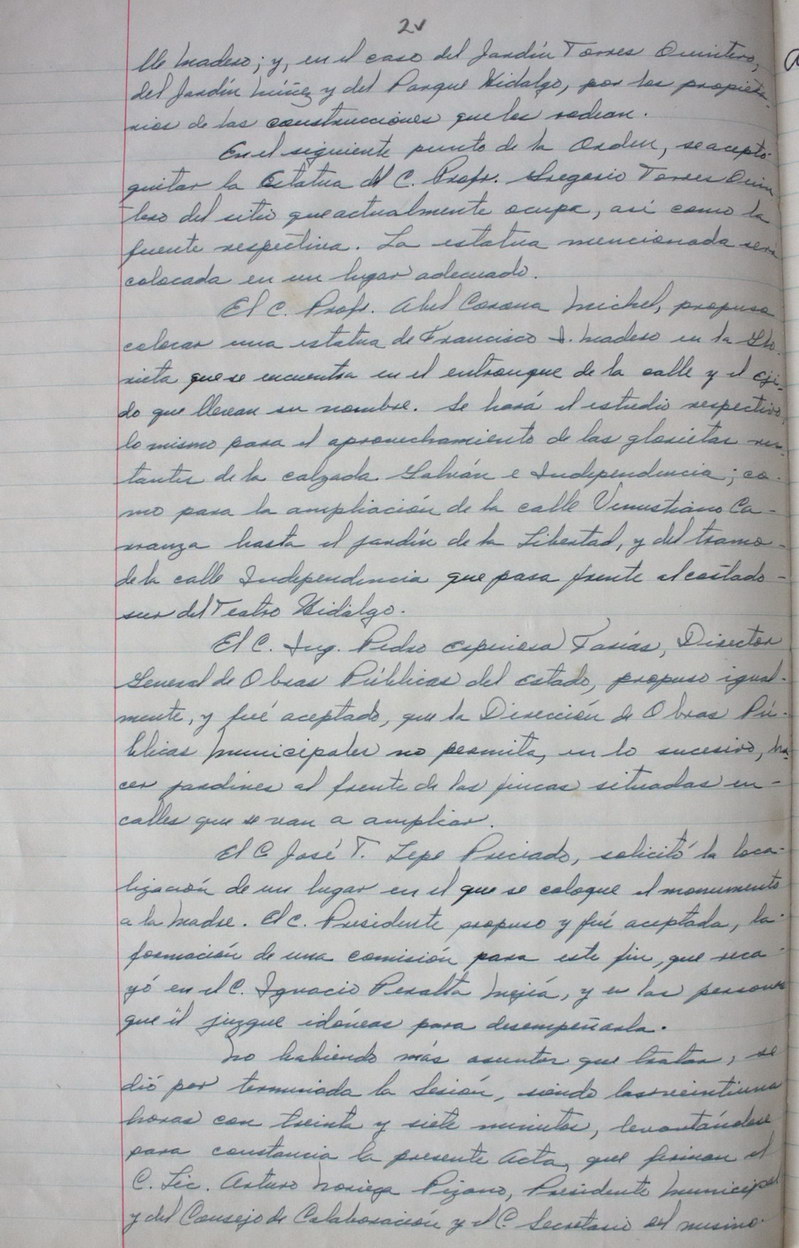 2v
lle Madero; y, en el caso del Jardín Torres Quintero,
del Jardín Núñez y del Parque Hidalgo, por los propieta-
rios de las construcciones que los rodean.
En el siguiente punto de la Orden, se aceptó
quitar la Estatua del C. Profr. Gregorio Torres Quin
tero del sitio que actualmente ocupa, así como la
fuente respectiva. La estatua mencionada será
colocada en un lugar adecuado.
El C. Profr. Abel Corona Michel, propuso
colocar una estatua de Francisco I. Madero en la Glo-
rieta que se encuentra en el entronque de la calle y el eji-
do que llevan su nombre. Se hará el estudio respectivo,
lo mismo para el aprovechamiento de las glorietas res-
tantes de la calzada Galván e Independencia; co-
mo para la ampliación de la calle Venustiano Ca-
rranza hasta el jardín de la Libertad, y del tramo-
de la calle Independencia que pasa frente al costado-
sur del Teatro Hidalgo.
El C. Ing. Pedro Espinosa Farías, Director
General de Obras Públicas del Estado, propuso igual-
mente, y fué aceptado, que la Dirección de Obras Pú-
blicas Municipales no permita, en lo sucesivo, ha-
cer jardines al frente de las fincas situadas en-
calles que se van a ampliar.
El C. José T. Lepe Preciado, solicitó la loca-
lización de un lugar en el que se coloque el monumento
a la Madre. El C. Presidente propuso y fué aceptada, la-
formación de una comisión para este fin, que reca-
yó en el C. Ignacio Peralta Mejía, y en las personas
que él juzgue idóneas para desempeñarla.
No habiendo más asuntos que tratar, se
dió por terminada la Sesión, siendo las veintiuna
horas con treinta y siete minutos, levantándose
para constancia la presente Acta, que firman el
C. Lic. Arturo Noriega Pizano, Presidente Municipal
y del Consejo de Colaboración y el C. Secretario del mismo.